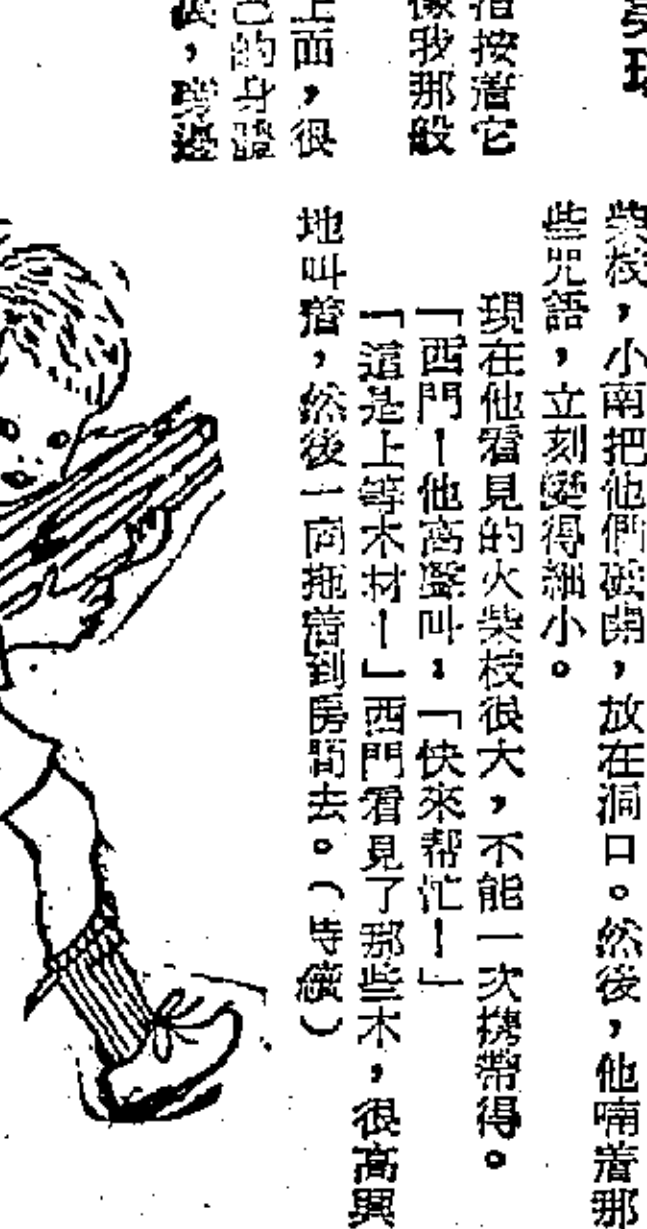 指按着它
像我那般
上面,很
己的身體
旁邊
柴枝,小南把他們破開,放在洞口。然後,他喃着那
些咒語,立刻變得細小。
現在他看見的火柴枝很大,不能一次携帶得。
「西門!他高聲叫:「快來帮忙!」
「這是上等木材!」西門看見了那些木,很高興
地叫着,然後一同拖着到房間去。(待續)